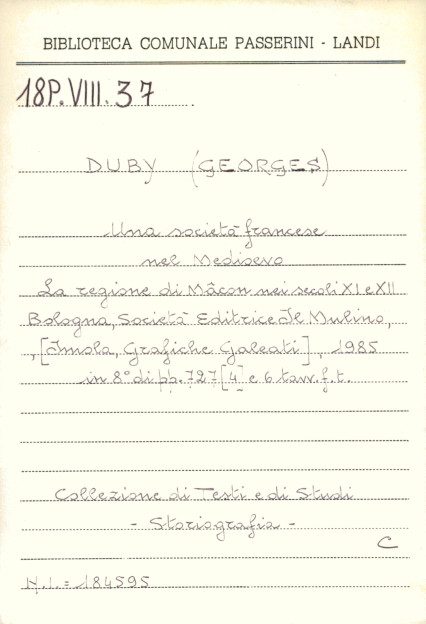 BIBLIOTECA COMUNALE PASSERINI - LANDI
18P.VIII.37
DUBY (GEORGES)
Una società francese
nel Medioevo
La regione di Mâcon nei secoli XI e XII
Bologna, Società Editrice Il Mulino,
, [Imola, Grafiche Galeati], 1985
in 8° di pp. 727 [4] e 6 tavv. f. t.
Collezione di Testi e di Studi
- Storiografia -
C
N.I. = 184595